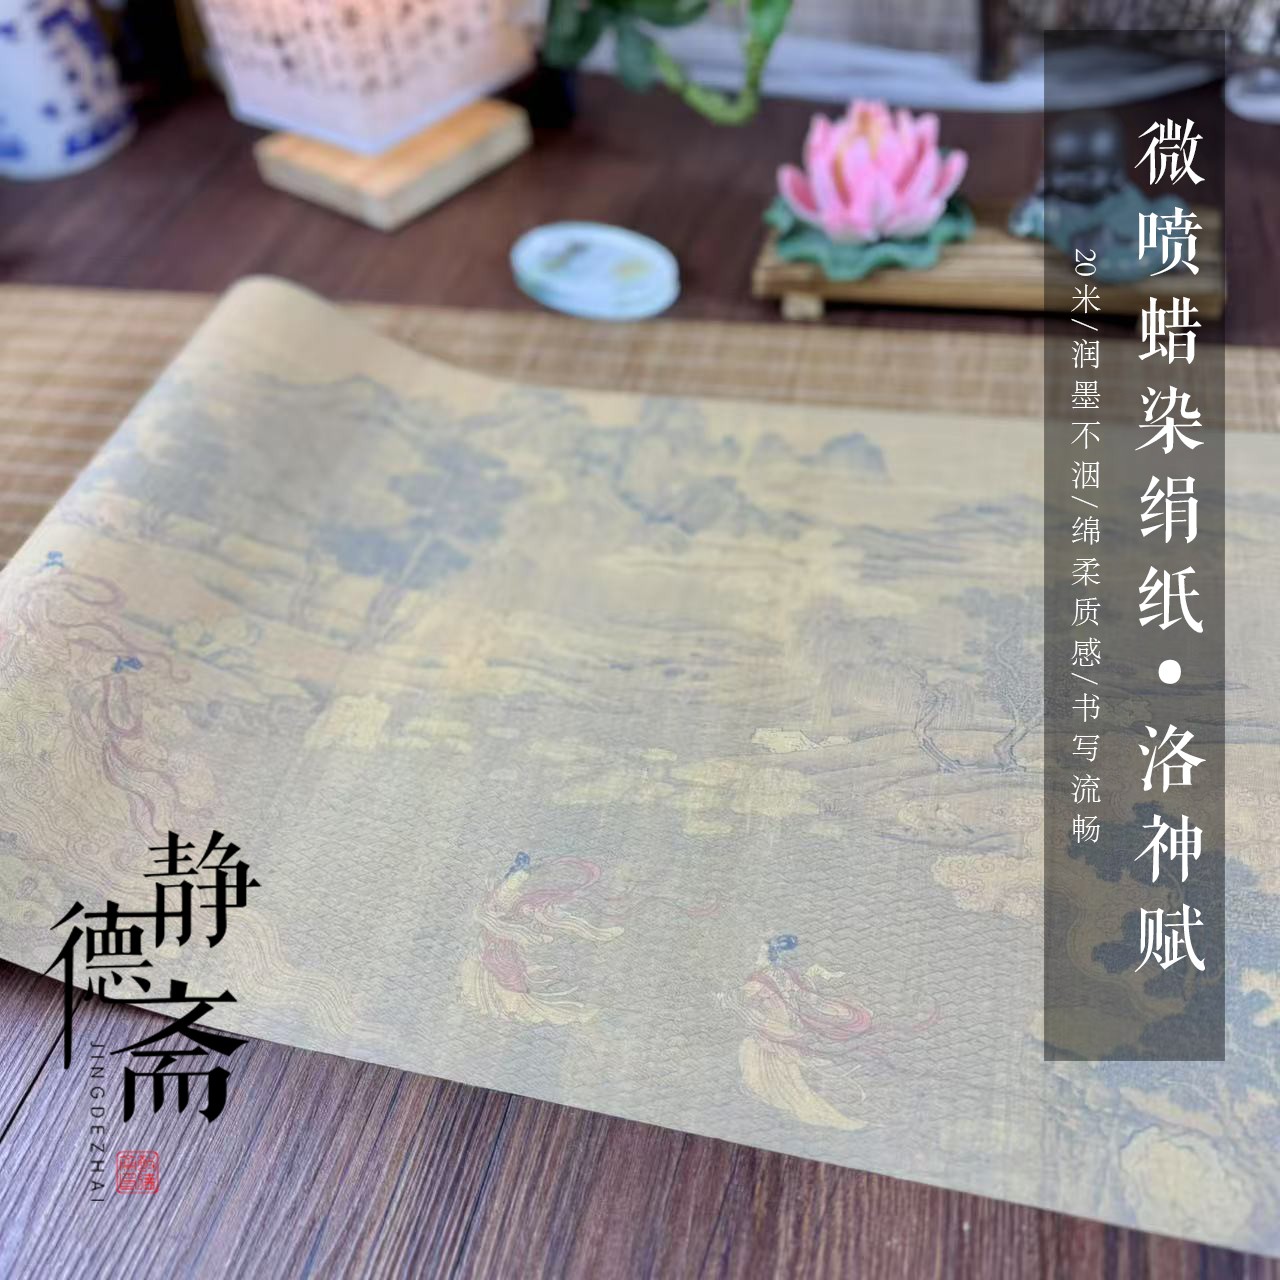 微喷蜡染绢纸·洛神赋
20米/润墨不洇/绵柔质感/书写流畅
静德斋
JINGDEZHAI